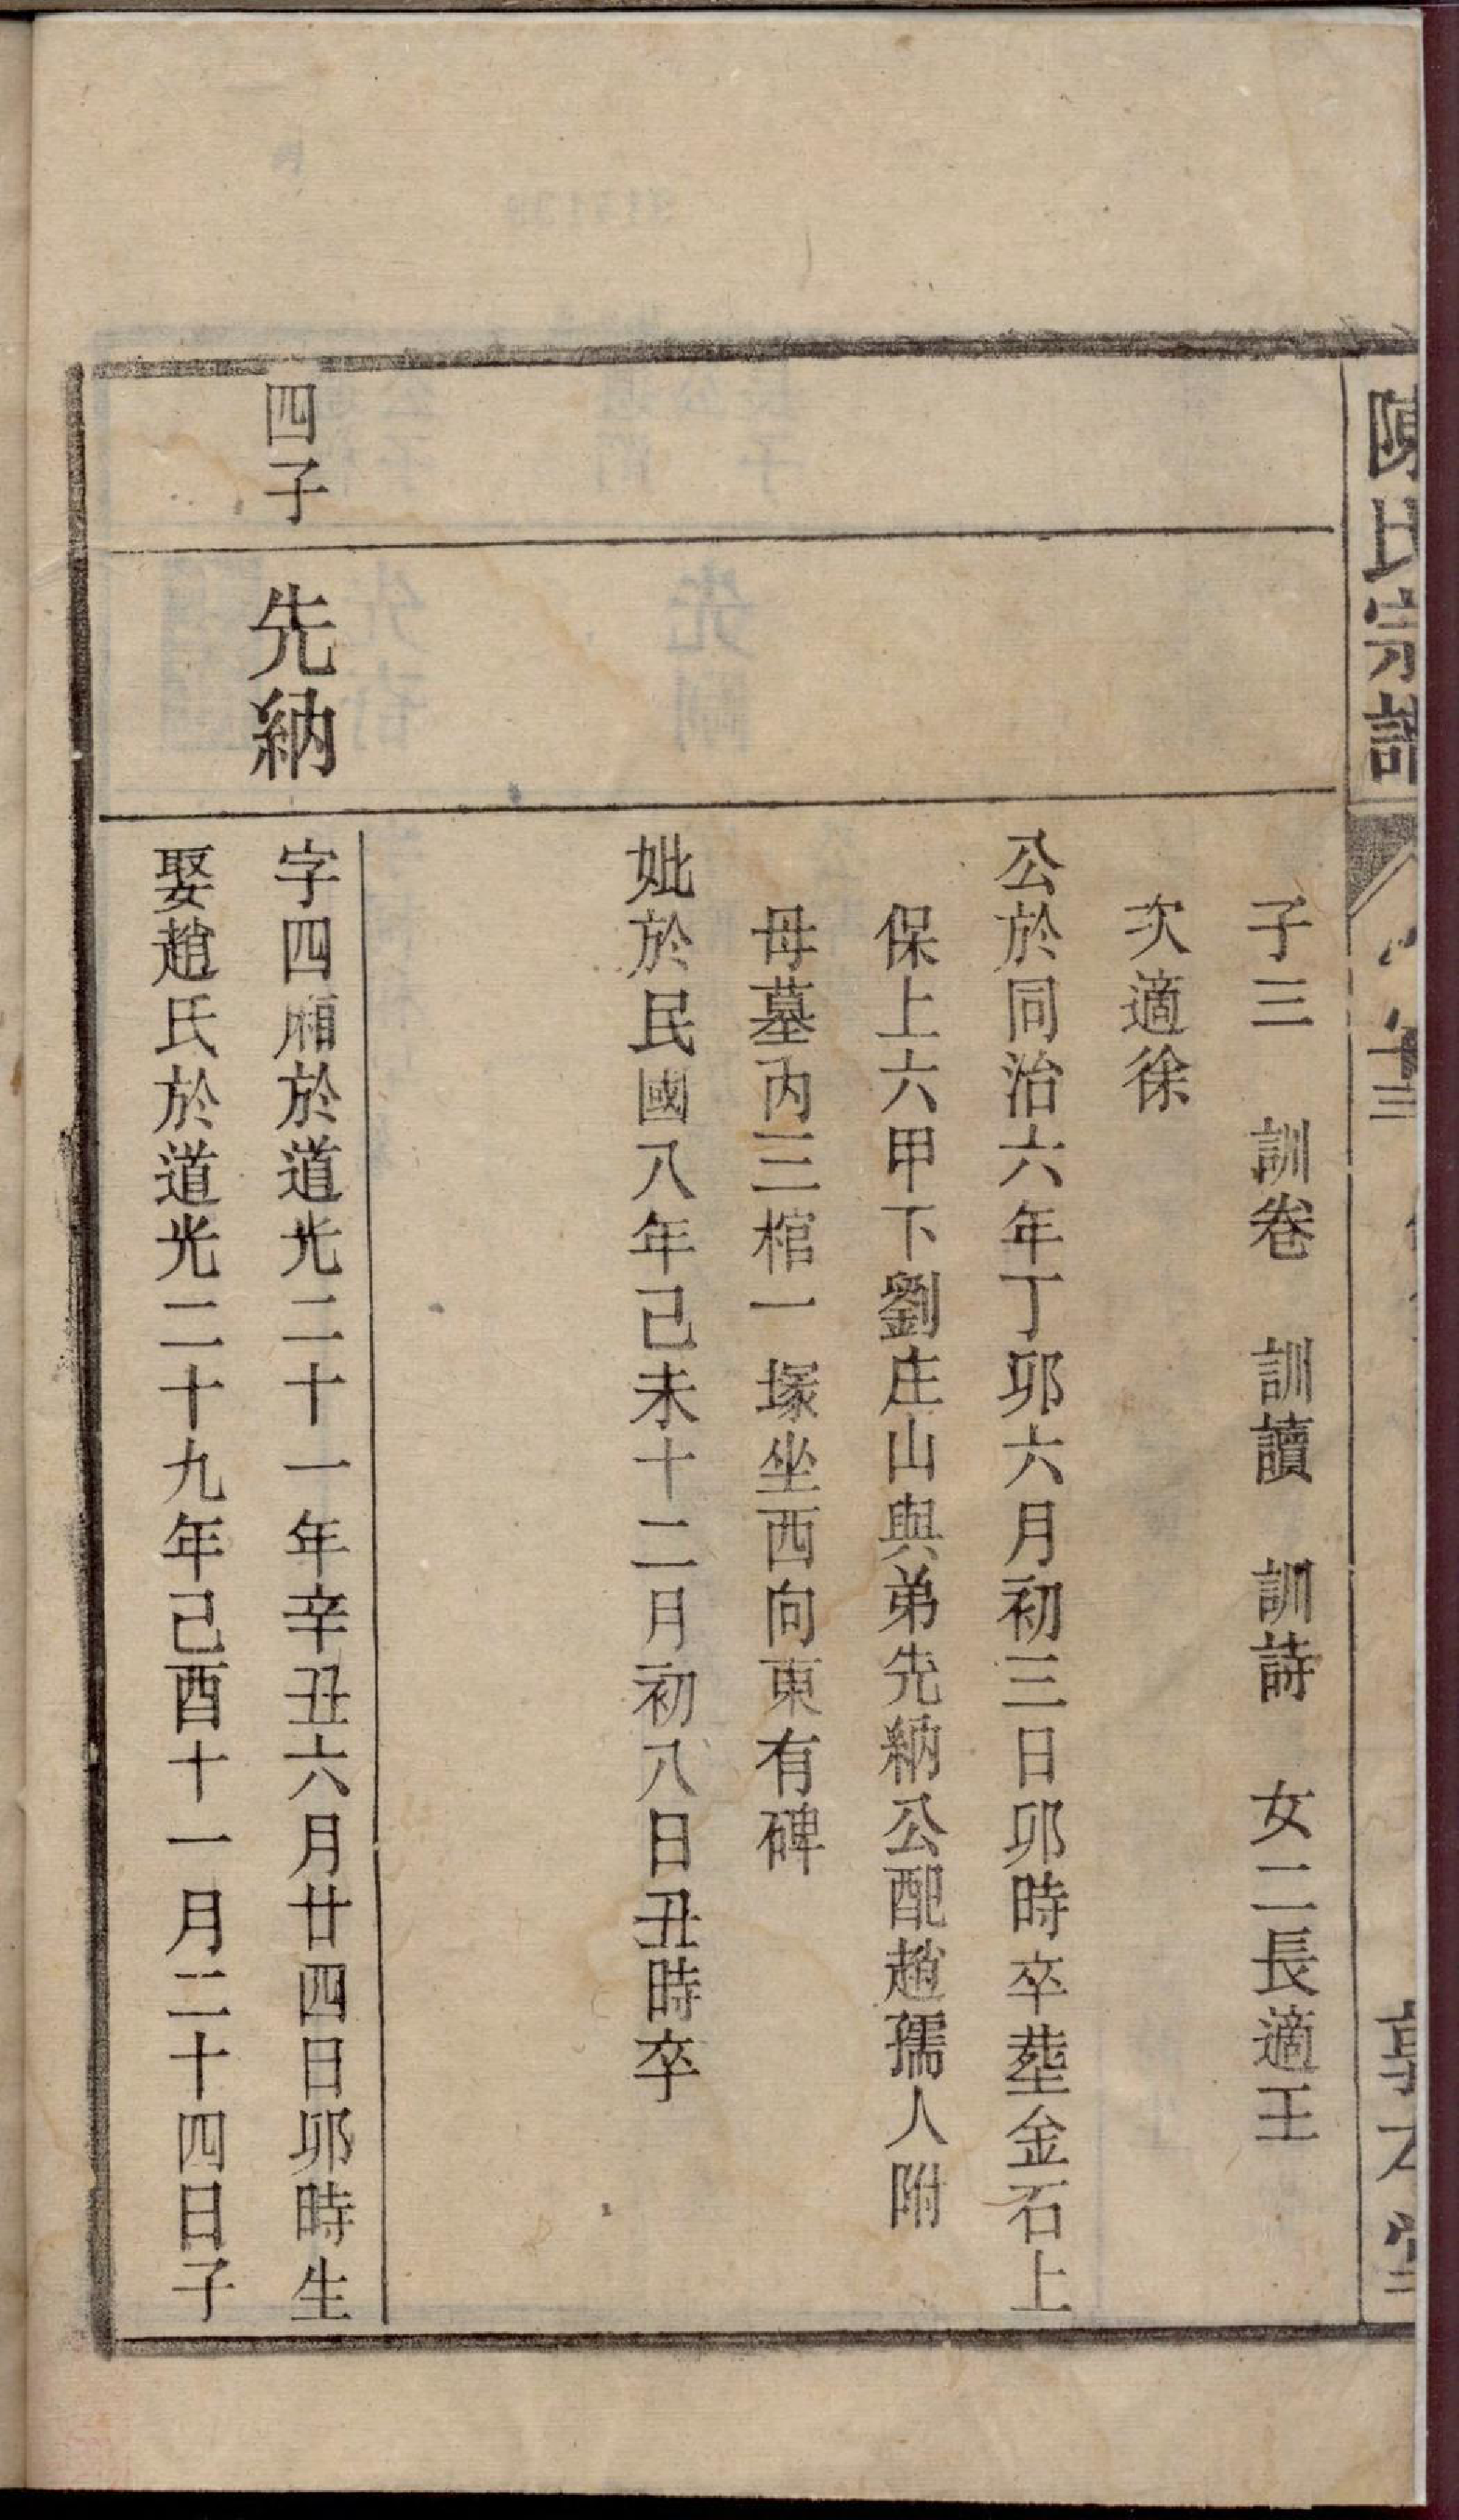 陳氏宗譜
子三　訓卷　訓讀　訓詩　女二長適王
次適徐
公於同治六年丁卯六月初三日卯時卒塟金石上
保上六甲下劉庄山與弟先納公配趙孺人附
母墓內三棺一塚坐西向東有碑
妣於民國八年己未十二月初八日丑時卒
四子
先納
字四廂於道光二十一年辛丑六月廿四日卯時生
娶趙氏於道光二十九年己酉十一月二十四日子